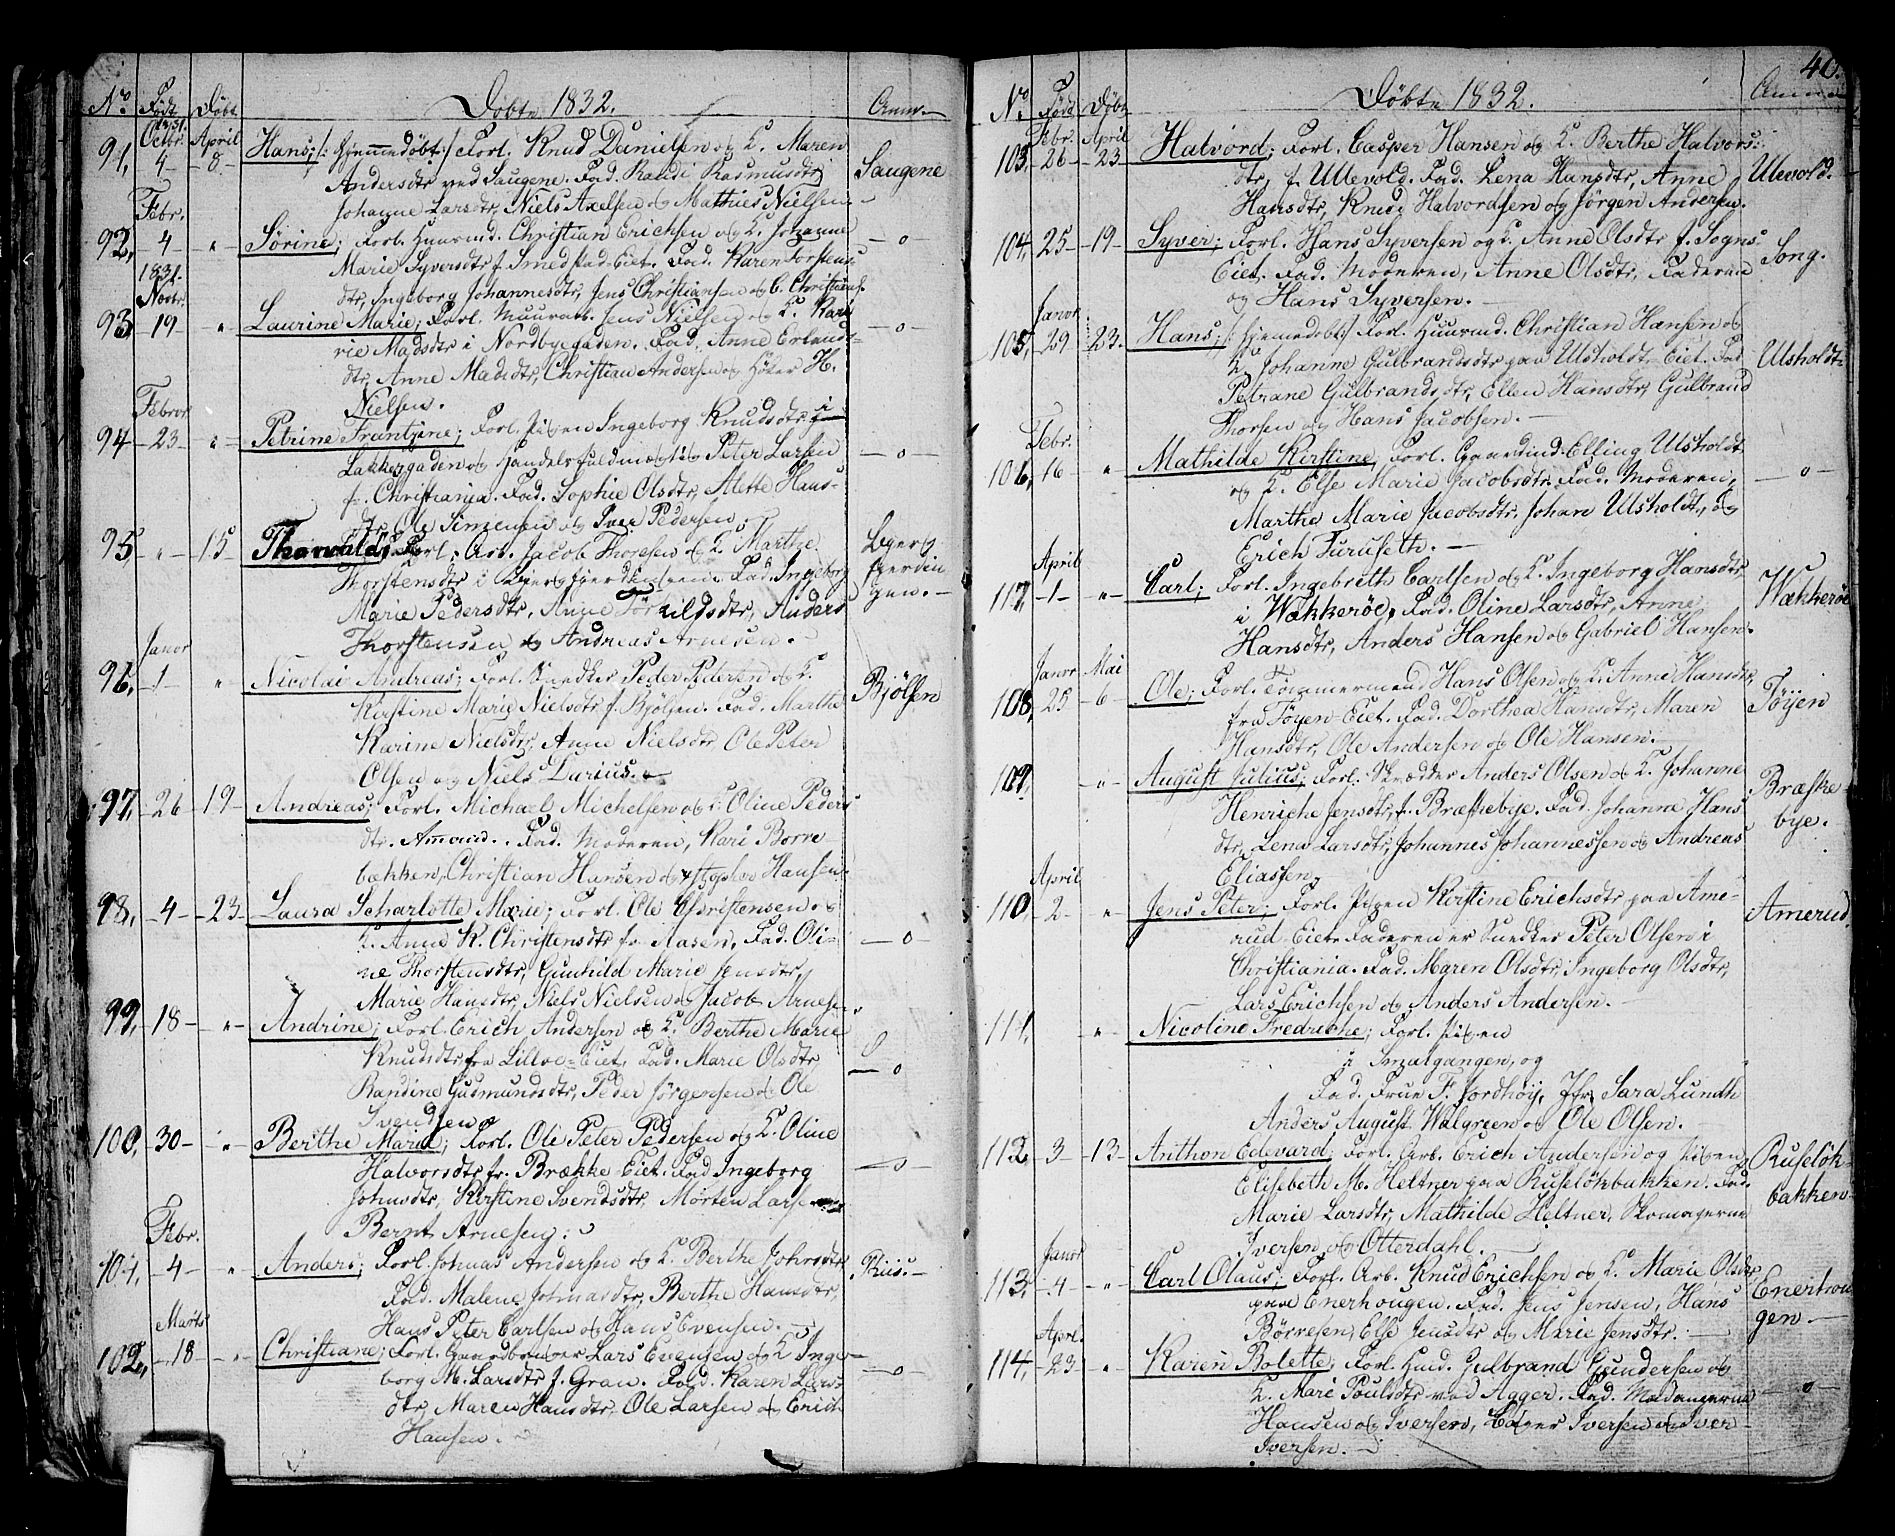 Døbte 1832.
No Født Døbt Anm.
1831.
Octbr. April
91, 4 - 8 Hans; /: hjemmedøbt :/ Forl. Knud Danielsen og K. Maren
Andersdtr ved Saugene. Fad. Randi Rasmusdtr, Saugene
Johanne Larsdtr, Niels Axelsen og Mathies Nielsen.
Febr.
92, 4 " Sørine; Forl. Huusmd. Christian Erichsen og K. Johanne - o -
Marie Syversdtr f. Smedstad-Eiet. Fad. Karen Torstens-
dtr, Ingeborg Johannesdtr, Jens Christiansen og C. Christians.
1831.
Novbr.
93 19 - " Laurine Marie; Forl. Muurarb. Jens Nielsen og K. Ka- - o -
rie Madsdtr i Nordbyegaden. Fad. Anne Erlands-
dtr, Anne Madsdtr, Christian Andersen og Høker H.
Nielsen.
Febror
94 - 23 - " Petrine Frantzine; Forl. Pigen Ingeborg Knudsdtr i
Lakkegaden og Handelsfuldmægtig Peter Larsen - o -
f. Christiania. Fad. Sophie Olsdtr, Mette Hans-
dtr, Ole Simensen og Iver Pedersen.
95, - " - 15 Thorvald; Forl. Arb. Jacob Thoresen og K. Marthe
Thorstensdtr i Bjergfjerdingen. Fad. Ingeborg
Marie Pedersdtr, Anne Tørrildsdtr, Anders
Thorstensen og Andreas Arnesen.
Janor
96, - 1 - " Nicolai Andreas; Forl. Snedker Peder Pedersen og K.
Kirstine Marie Nielsdtr f. Bjølsen. Fad. Marthe Bjølsen
Karine Nielsdtr, Anne Nielsdtr, Ole Peter
Olsen og Niels Darius.
97, - 26 - 19 - Andreas; Forl. Michael Michelsen og K. Oline Peders
dtr. Amerud. Fad. Moderen, Kari Borre
bækken, Christian Hansen og Hansen.
98, - 4 - 23 - Laura Scharlotte Marie; Forl. Ole Christensen og
K. Anne K. Christensdtr fr. Aasen. Fad. Oli- - o -
ne Thorstensdtr, Gunhild Marie Jensdtr,
Marie Hansdtr, Niels Nielsen og Jacob Arnesen.
99, - 18 - " - Andrine; Forl. Erich Andersen og K. Berthe Marie
Knudsdtr fra Lilloe-Eiet. Fad. Marie Olsdtr, - o
Randine Gudmundsdtr, Peder Jørgensen og Ole
Svendsen
100, - 30 - " Berthe Marie; Forl. Ole Peter Pedersen og K. Oline
Halvorsdtr fr. Brække-Eiet. Fad. Ingeborg - o -
Johnsdtr, Kirstine Svendsdtr, Morten Larsen
Bernt Arnesen.
Febr.
101, - 4 - " Anders; Forl. Johnas Andersen og K. Berthe Johnsdtr Riis. -
Fad. Malene Johnasdtr, Berthe Hansdtr,
Hans Peter Carlsen og Hans Evensen.
Marts
102, - 18 - " Christiane; Forl. Gaardbruger Lars Evensen og K. Inge-
borg M. Larsdtr f. Grau. Fad. Karen Lars- - o -
dtr, Maren Hansdtr, Ole Larsen og Erich
Hansen.
40.
Døbte 1832.
No Født Døbt Anm.
Febr. April
103, - 26 - 23 - Halvord; Forl. Casper Hansen og K. Berthe Halvors-
dtr, f. Ullevold. Fad. Lena Hansdtr, Anne Ulevold.
Hansdtr, Knud Halvordsen og Jørgen Andersen.
104, 25 - 19 - Syver; Forl. Hans Syversen og K. Anne Olsdtr f. Sogns-
Eiet. Fad. Moderen, Anne Olsdtr, Faderen Song.
og Hans Syversen.
Janor.
105, 29 23. Hans; /: hjemedøbt :/ Forl. Huusmd. Christian Hansen og
K. Johanne Gulbrandsdtr paa Ulsholdt-Eiet. Fad. Ulsholdt
Petrane Gulbrandsdtr, Ellen Hansdtr, Gulbrand
Thorsen og Hans Jacobsen.
Febr.
106, 16 " Mathilde Kirstine, Forl. Gaardmd. Elling Ulsholdt
og K. Else Marie Jacobsdtr. Fad. Moderen, - o -
Marthe Marie Jacobsdtr, Johan Ulsholdt, og
Erich Furuseth.
April
117, - 1 - " - Carl; Forl. Ingebreth Carlsen og K. Ingeborg Hansdtr
i Wækkerøe, Fad. Oline Larsdtr, Anne Wækkerøe
Hansdtr, Anders Hansen og Gabriel Hansen.
Janor Mai
108, 25 - 6 - Ole; Forl. Tømmermand Hans Olsen og K. Anne Hansdtr,
fra Tøyen-Eiet. Fad. Dorthea Hansdtr, Maren Tøyen
Hansdtr, Ole Andersen og Ole Hansen.
109, - " - August Julius; Forl. Skrædder Anders Olsen og K. Johanne
Henriche Jensdtr, f. Bræskebye. Fad. Johanne Hans Bræske
dtr, Lena Larsdtr, Johannes Johannessen og Andreas bye.
Eliassen.
April
110, 2 - " Jens Peter; Forl. Pigen Kirstine Erichsdtr paa Ame-
rud-Eiet. Faderen er Snedker Peter Olsen i Amerud.
Christiania. Fad. Maren Olsdtr, Ingeborg Olsdtr,
Lars Erichsen og Anders Andersen.
111, " - Nicoline Fredriche; Forl. Pigen
i Smalgangen, og
Fad. Frue F. Jordhøy, Jfr. Sara Lundh
Anders August Walgreen og Ole Olsen.
112 3 - 13 - Anthon Edevard; Forl. Arb. Erich Andersen og Pigen
Elisebeth M. Heltner paa Ruseløkbakken. Fad. Ruseløk-
Marie Larsdtr, Mathilde Heltner, Skomagerne bakken
Iversen og Otterdahl.
Janor
113, - 4 - " - Carl Olaus; Forl. Arb. Knud Erichsen og K. Marie Olsdtr
paa Enerhougen. Fad. Jens Jensen, Hans Enerhou
Børresen, Else Jensdtr og Marie Jensdtr. gen.
Aprl.
114, - 23 " Karen Bolette; Forl. Hmd. Gulbrand Gundersen og
K. Mari Poulsdtr ved Agger. Fad. Madamerne - o
Hansen og Iversen, Iversen og Iver
Iversen.